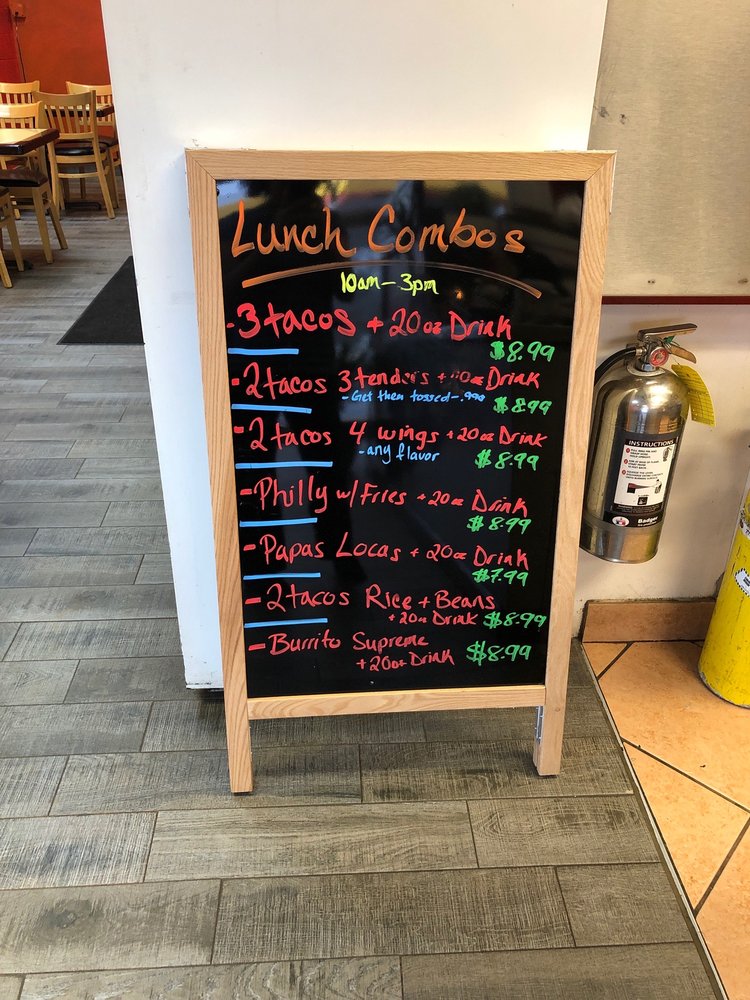 Lunch Combos
10am-3pm
-3tacos + 20oz Drink
$8.99
-2tacos 3tenders + 20oz Drink
-Get them tossed-.99¢
$8.99
-2tacos 4 wings + 20oz Drink
-any flavor
$8.99
-Philly w/Fries + 20oz Drink
$8.99
-Papas Locas + 20oz Drink
$7.99
-2tacos Rice + Beans
+ 20oz Drink $8.99
-Burrito Supreme
+ 20oz Drink $8.99
INSTRUCTIONS
Badger